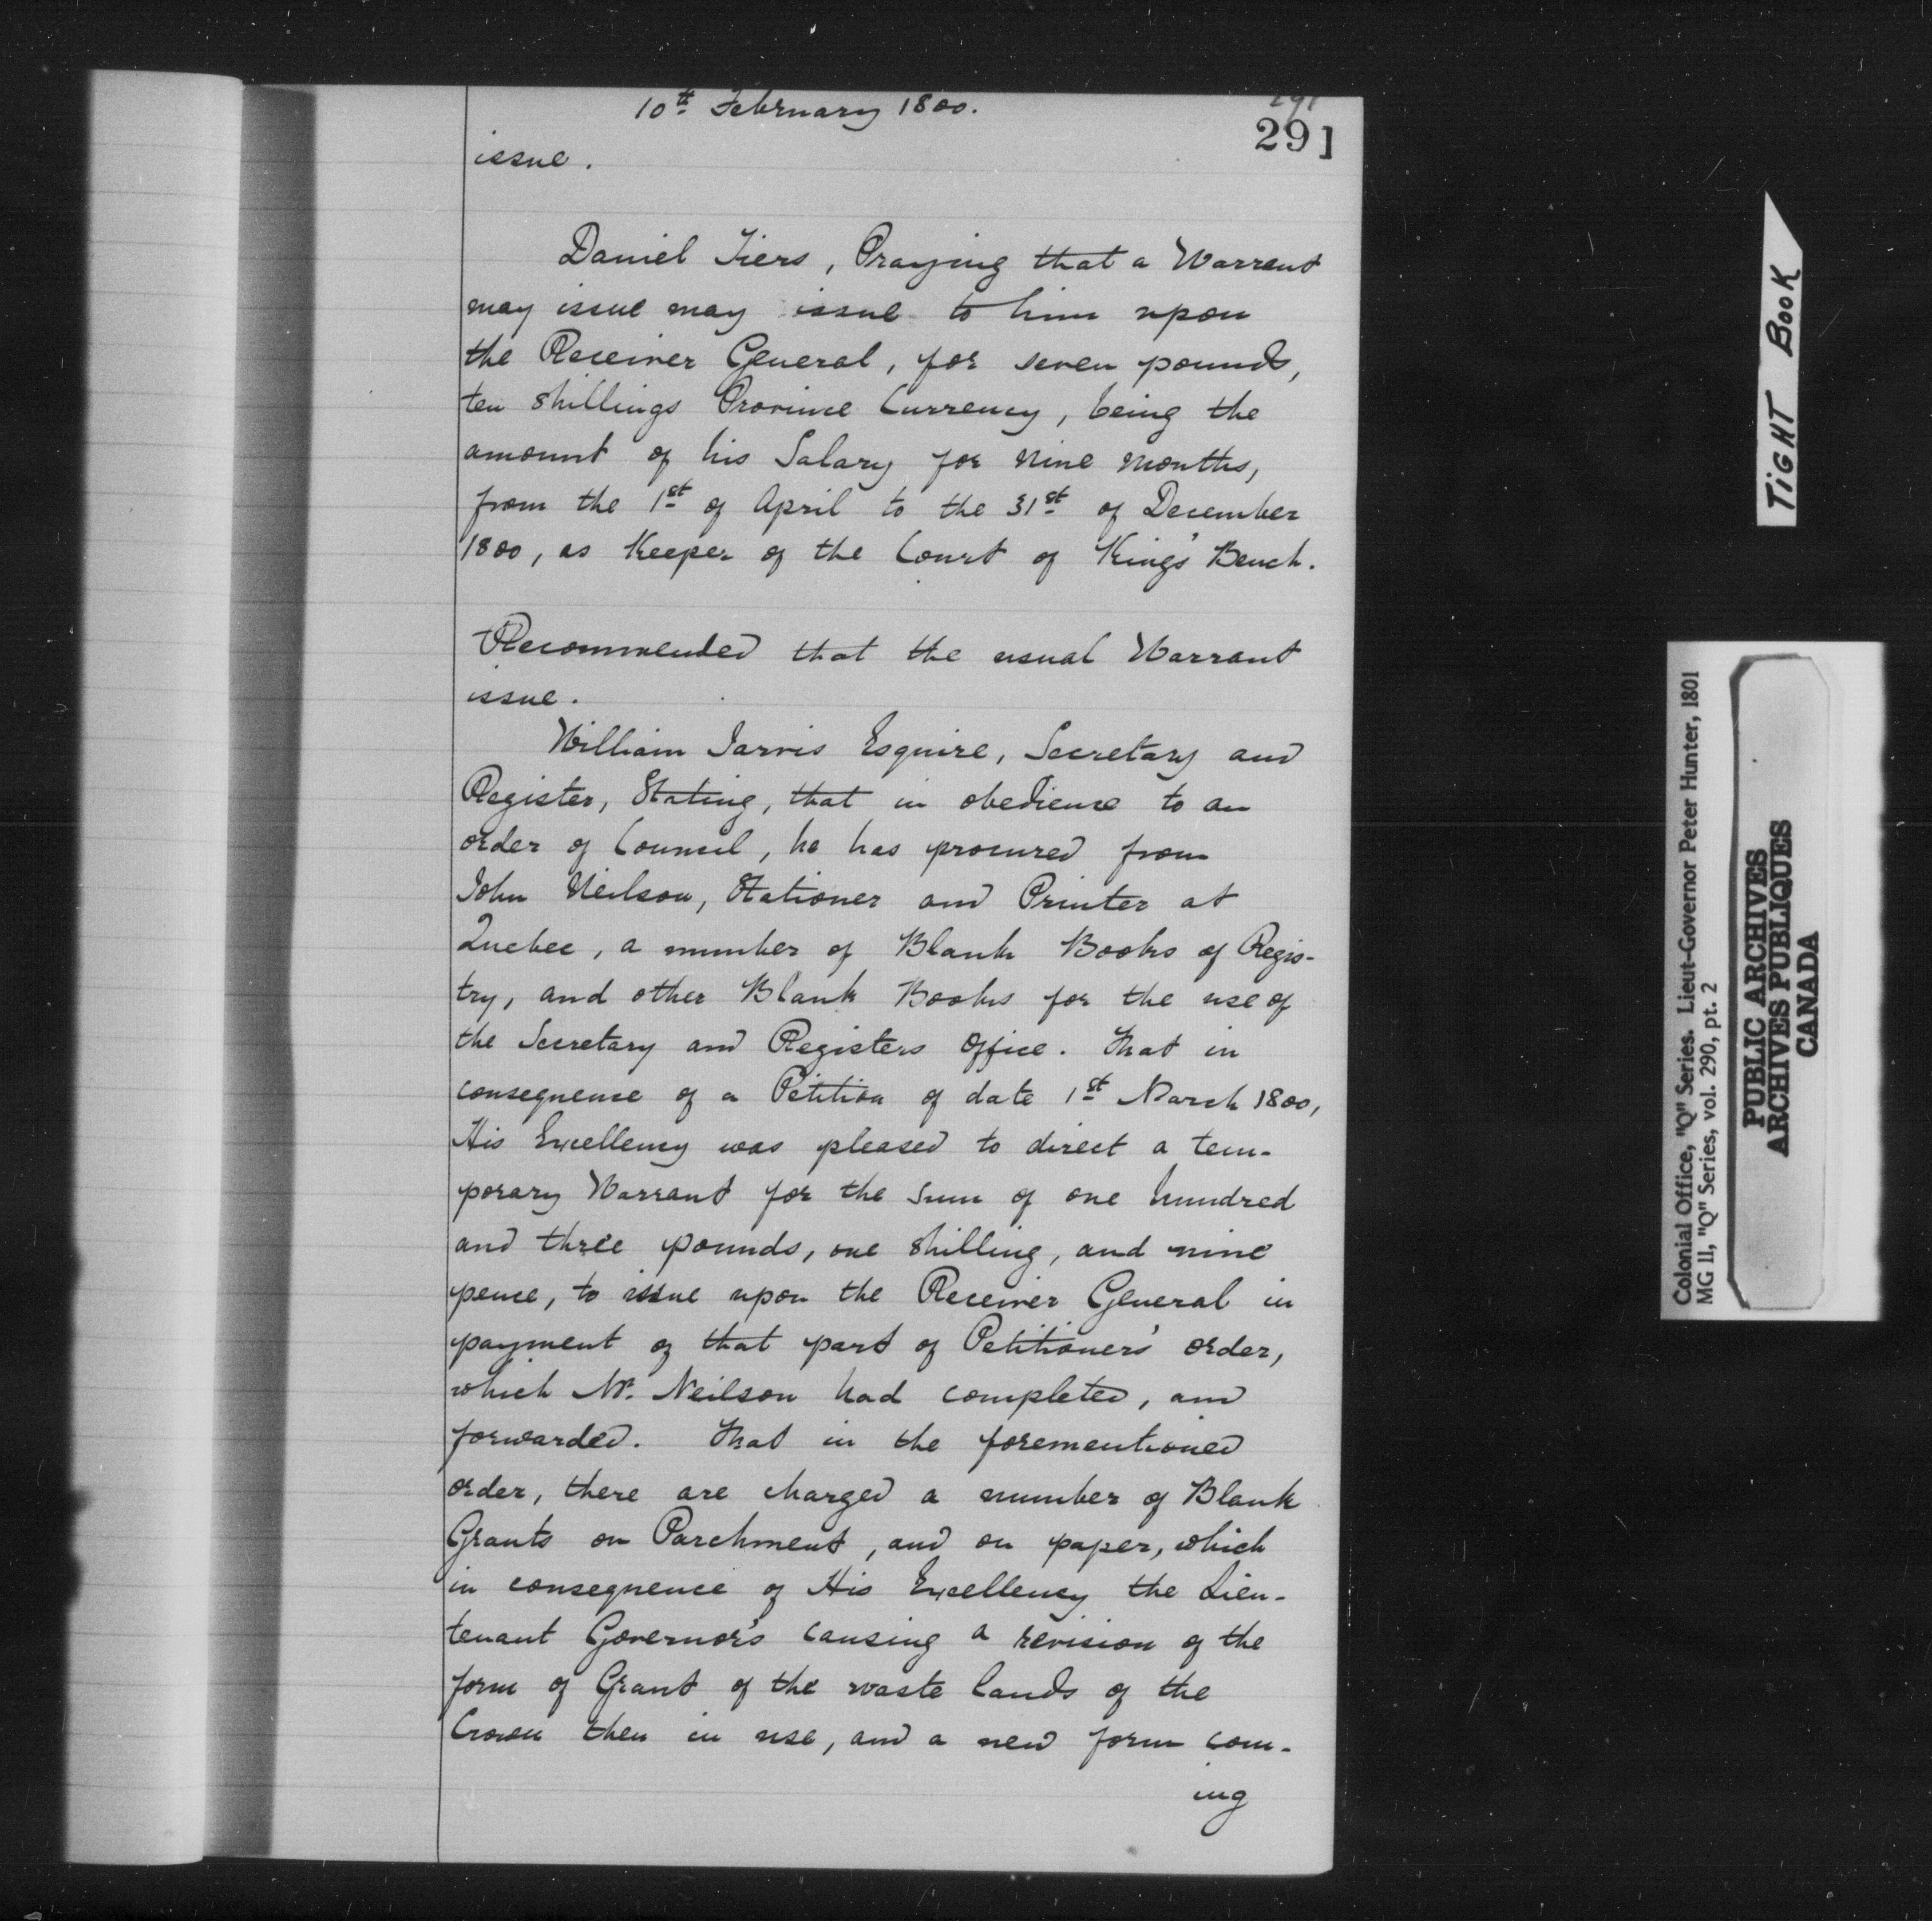 10th February 1800.
291
291
issue.
Daniel Tiers, Praying that a Warrant
may issue may issue to him upon
the Receiver General, for seven pounds,
ten shillings Province Currency, being the
amount of his Salary for nine months,
from the 1st of April to the 31st of December
1800, as Keeper of the Court of King's Bench.
Recommended that the usual Warrant
issue.
William Jarvis Esquire, Secretary and
Register, Stating, that in obedience to an
order of Council, he has procured from
John Neilson, Stationer and Printer at
Quebec, a number of Blank Books of Regis-
try, and other Blank Books for the use of
the Secretary and Registers Office. That in
consequence of a Petition of date 1st March 1800,
His Excellency was pleased to direct a tem-
porary Warrant for the sum of one hundred
and three pounds, one shilling, and nine
pence, to issue upon the Receiver General in
payment of that part of Petitioners' order,
which Mr. Neilson had completed, and
forwarded. That in the forementioned
order, there are charged a number of Blank
Grants on Parchment, and on paper, which
in consequence of His Excellency the Lieu-
tenant Governor's causing a revision of the
form of Grant of the waste lands of the
Crown then in use, and a new form com-
ing
TIGHT BOOK
Colonial Office, "Q" Series. Lieut-Governor Peter Hunter, 1801
MG 11, "Q" Series, vol. 290, pt. 2
PUBLIC ARCHIVES
ARCHIVES PUBLIQUES
CANADA